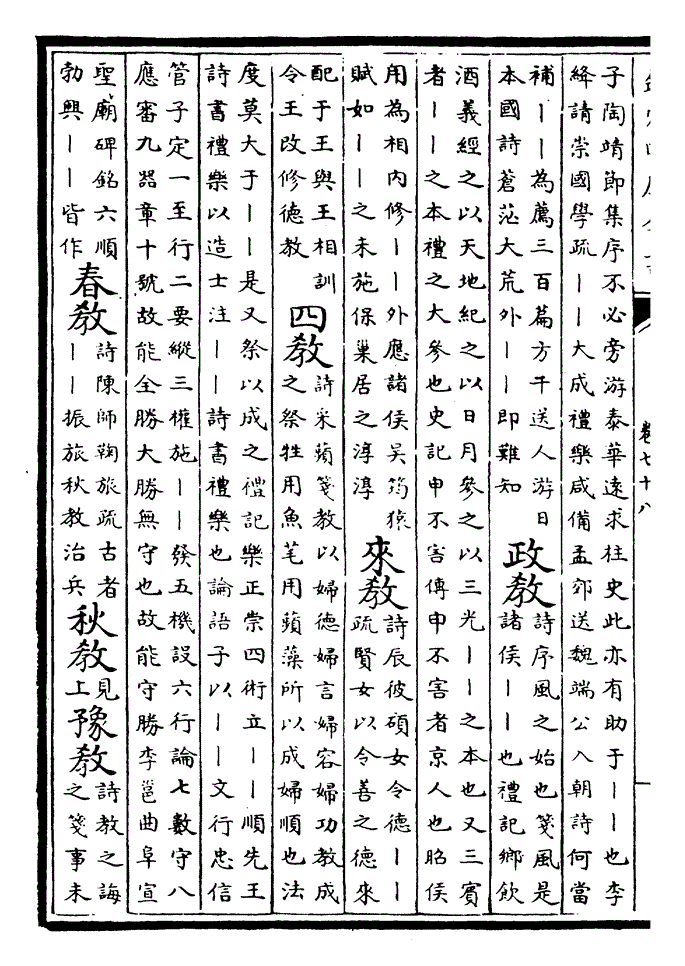 欽定四庫全書
卷七十八
子陶靖節集序不必旁游泰華遠求往史此亦有助于丨丨也李
絳請崇國學疏丨丨大成禮樂咸備孟郊送魏端公入朝詩何當
補丨丨為薦三百篇方干送人游日
本國詩蒼茫大荒外丨丨即難知
政教
詩序風之始也箋風是
諸侯丨丨也禮記鄉飲
酒義經之以天地紀之以日月參之以三光丨丨之本也又三賓
者丨丨之本禮之大參也史記申不害傳申不害者京人也昭侯
用為相內修丨丨外應諸侯吳筠猿
賦如丨丨之未施保巢居之淳淳
來教
詩辰彼碩女令德丨丨
疏賢女以令善之德來
配于王與王相訓
令王改修德教
四教
詩采蘋箋教以婦德婦言婦容婦功教成
之祭牲用魚芼用蘋藻所以成婦順也法
度莫大于丨丨是又祭以成之禮記樂正崇四術立丨丨順先王
詩書禮樂以造士注丨丨詩書禮樂也論語子以丨丨文行忠信
管子定一至行二要縱三權施丨丨發五機設六行論七數守八
應審九器章十號故能全勝大勝無守也故能守勝李邕曲阜宣
聖廟碑銘六順
勃興丨丨皆作
春教
詩陳師鞠旅疏古者
丨丨振旅秋教治兵
秋教
見
上
豫教
詩教之誨
之箋事未